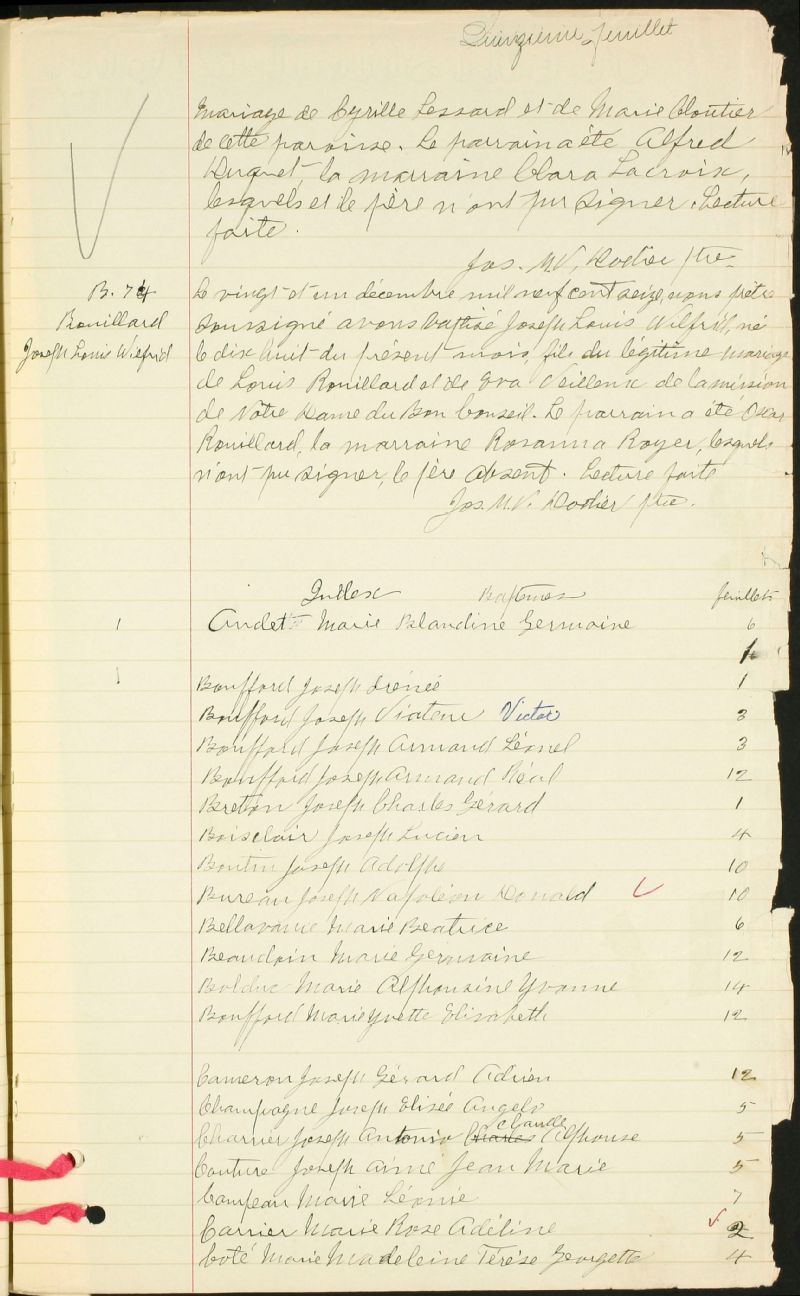 Quinzième feuillet
mariage de Cyrille Lessard et de Marie Cloutier
de cette paroisse. Le parrain a été Alfred
Duquet, la marraine Clara Lacroix,
lesquels et le père n'ont pu signer. Lecture
faite.
Jos. M.V. Rodier ptre
B. 74
Rouillard
Joseph Louis Wilfrid
Le vingt et un décembre mil neuf cent seize, nous prêtre
soussigné avons baptisé Joseph Louis Wilfrid, né
le dix huit du présent mois, fils du légitime mariage
de Louis Rouillard et de Eva Veilleux de la mission
de Notre Dame du Bon Conseil. Le parrain a été Oscar
Rouillard, la marraine Rosanna Royer, lesquels
n'ont pu signer, le père absent. Lecture faite
Jos. M.V. Rodier ptre.
Index Baptemes feuillets
1 Audet Marie Blandine Germaine 6
1
Boufford Joseph Irénée 1
Boufford Joseph Viateur Victor 3
Boufford Joseph Armand Léonel 3
Boufford Joseph Armand Réal 12
Breton Joseph Charles Gérard 1
Boisclair Joseph Lucien 4
Boutin Joseph Adolphe 10
Bureau Joseph Napoléon Donald 10
Bellavance Marie Beatrice 6
Beaudoin Marie Germaine 12
Bolduc Marie Alphonsine Yvonne 14
Boufford Marie Yvette Elisabeth 12
Cameron Joseph Gérard Adrien 12
Champagne Joseph Elisée Angelo 5
Charrier Joseph Antonio Charles Claude Alphonse 5
Couture Joseph Aimé Jean Marie 5
Campeau Marie Léonie 7
Carrier Marie Rose Adéline 2
Coté Marie Madeleine Térèse Georgette 4